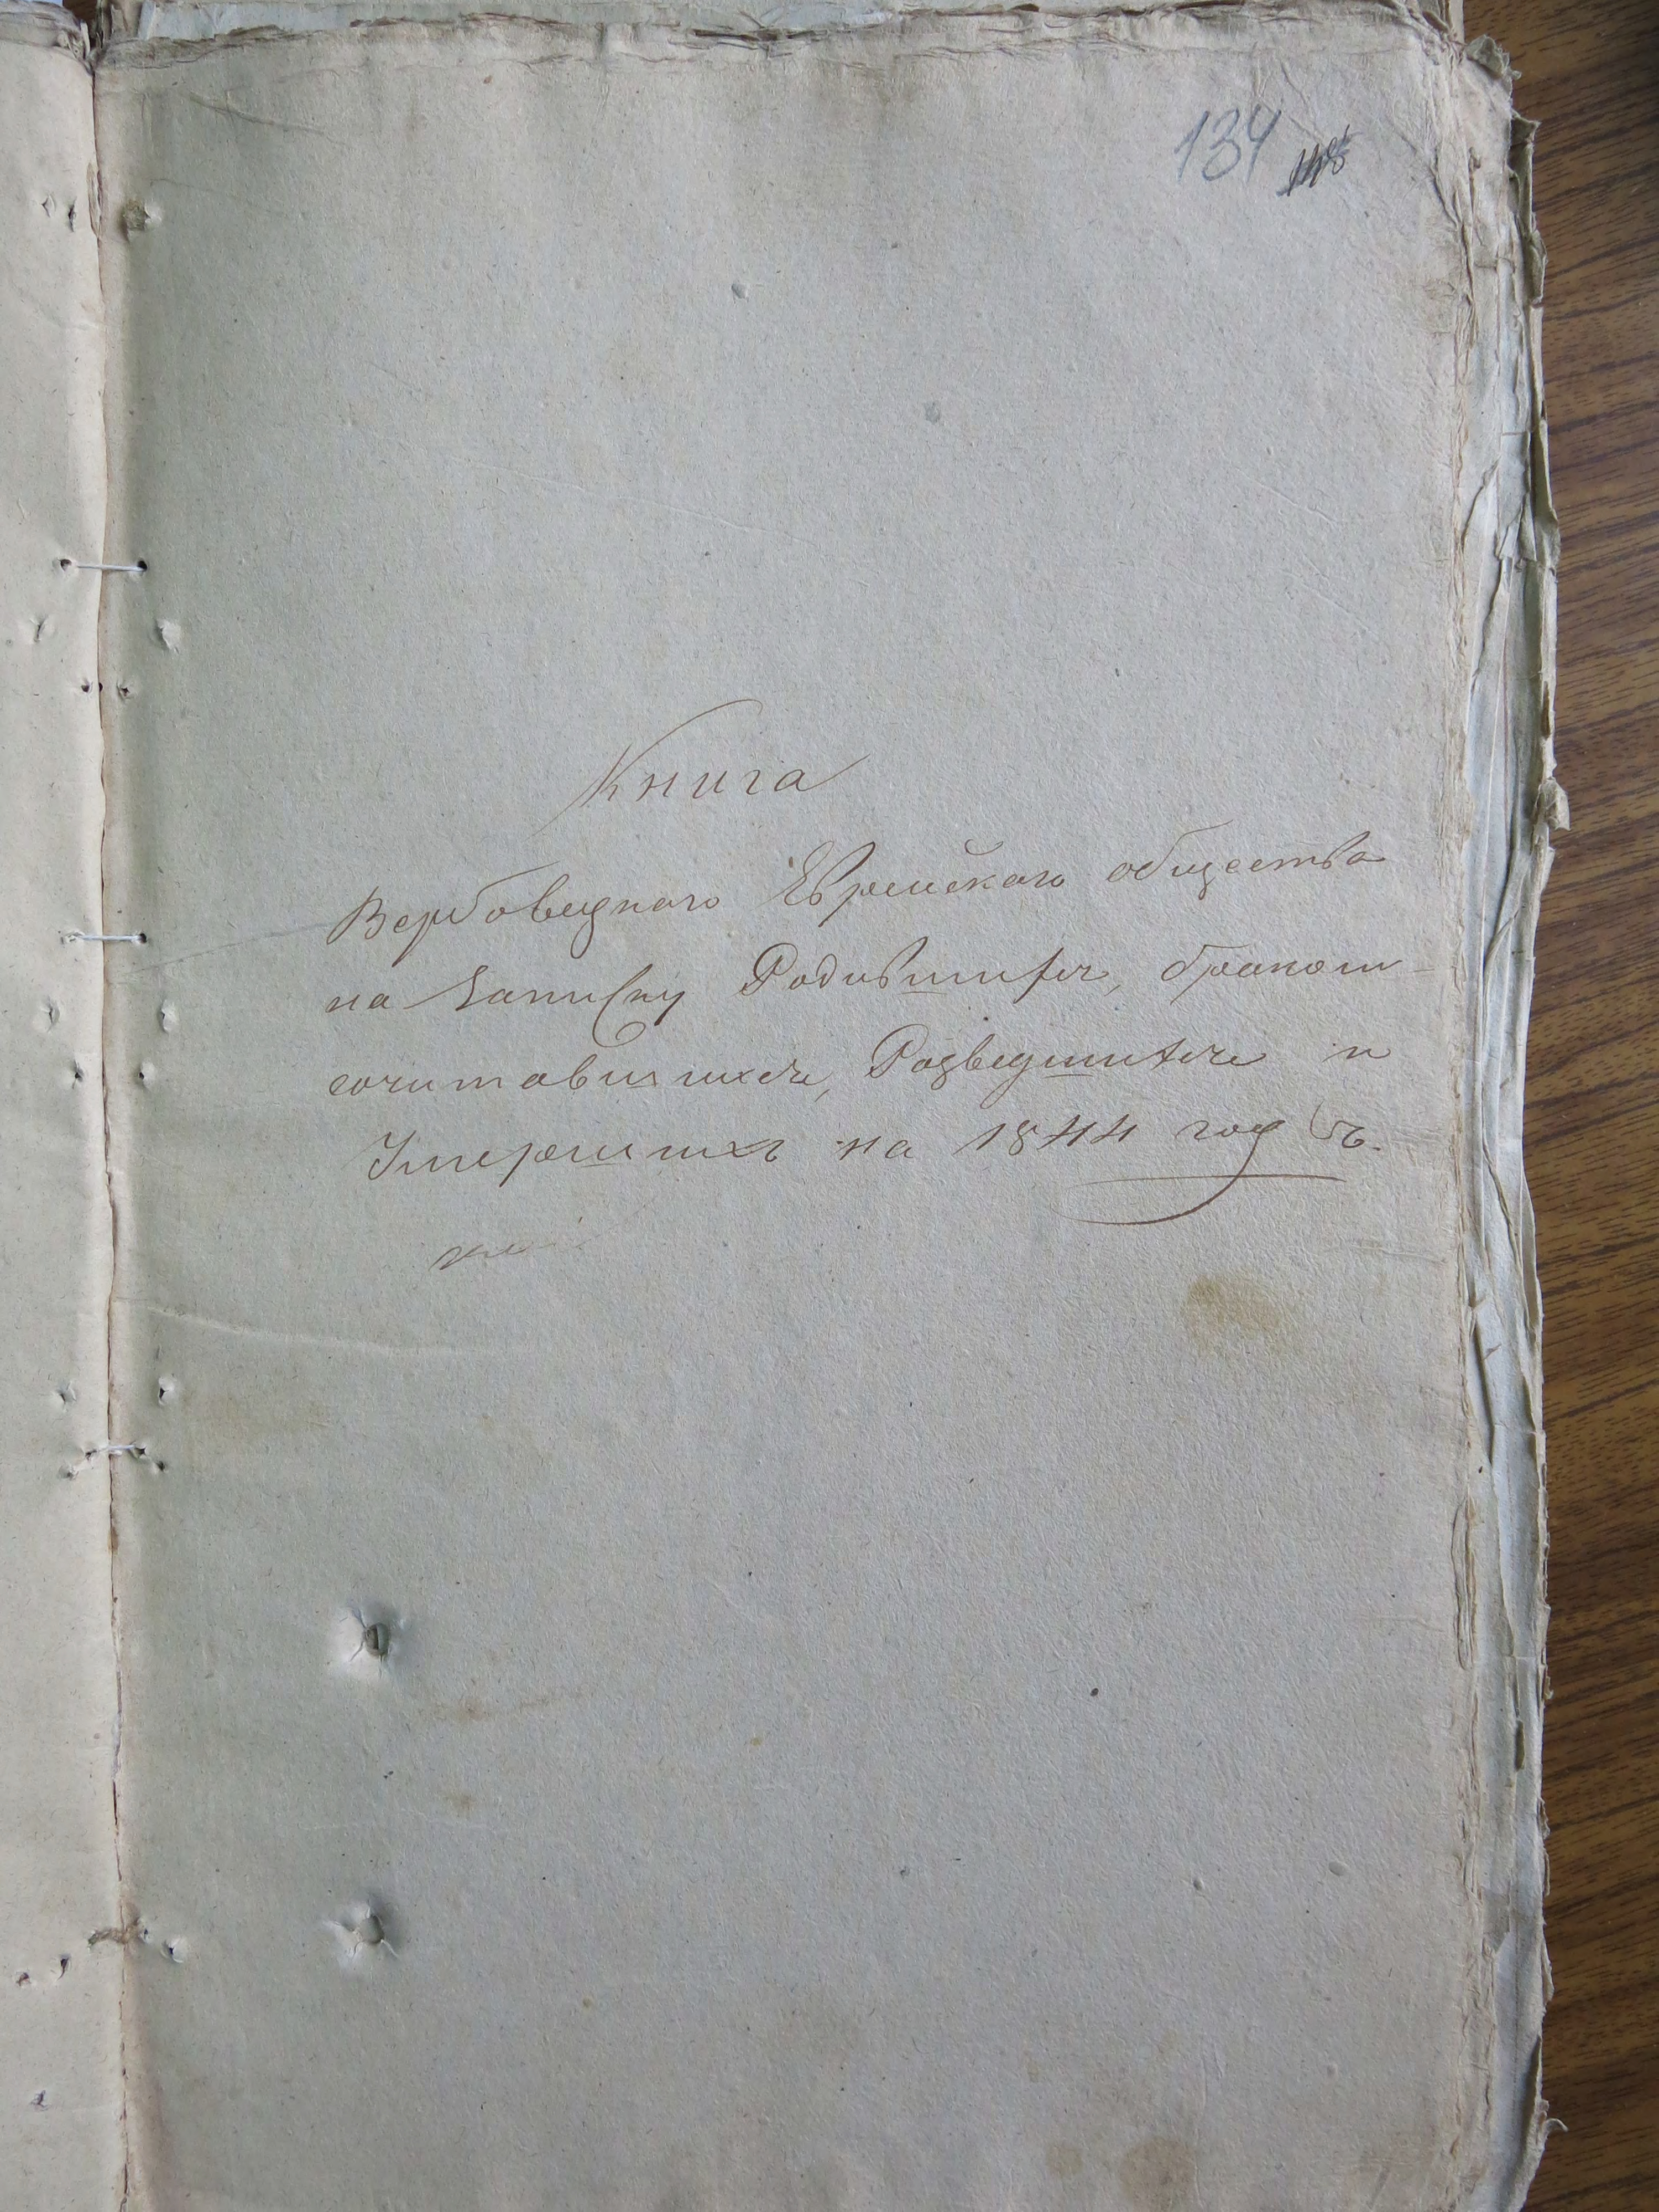 134
Книга
Вербовецкаго Еврейскаго общества
на Записку Родившихся, бракомъ
сочитавшихся, Розведшихся и
Умершихъ на 1844 годъ.